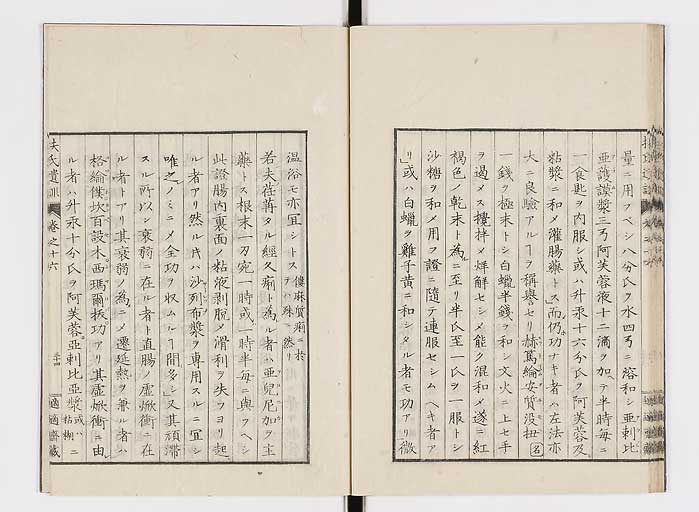 量ニ用フベシ八分氏ヲ水四弓ニ溶和シ亜剌比
亜護謨漿三弓阿芙蓉液十二滴ヲ加テ半時毎ニ
一食匙ヲ内服シ或ハ升汞十六分氏ヲ阿芙蓉及
粘漿ニ和メ灌腸藥トス而仍功ナキ者ハ左法亦
大ニ良驗アルヿヲ稱譽セリ赫篤綸安質没扭名
一錢ヲ極末トシ白蠟半錢ヲ和シ文火ニ上セ手
ヲ過メス攪拌メ烊解セシメ能ク混和メ遂ニ紅
褐色ノ乾末ト為ニ至リ半氏至一氏ヲ一服トシ
沙糖ヲ和メ用フ證ニ隨テ連服セシムヘキ者ア
リ或ハ白蠟ヲ雞子黄ニ和シタル者モ功アリ微
温浴モ亦宜シトス
僂麻質痢ニ於
テハ殊ニ然リ
若夫荏苒タル經久痢ト為ル者ハ亜兒尼加ヲ主
藥トス根末一刃宛一時或一時半毎ニ與フヘシ
此證腸内裏面ノ粘液剥脱メ滑利ヲ失フヨリ起
ル者アリ然ル片ハ沙列布漿ヲ専用スルニ宜シ
唯之ノミニメ全功ヲ收ムルヿ間多シ又其頑滞
スル所以ン衰弱ニ在ル者ト直腸ノ虚焮衝ニ在
ル者トアリ其衰弱ノ為ニメ遷延熱ヲ兼ル者ハ
格綸僕坎百設木西瑪爾抜功アリ其虚焮衝ニ由
ル者ハ升汞十分氏ヲ阿芙蓉亜剌比亜漿
或ハ
粘糊
ニ
扶氏遺訓
卷之十六
二十四
適適齋藏